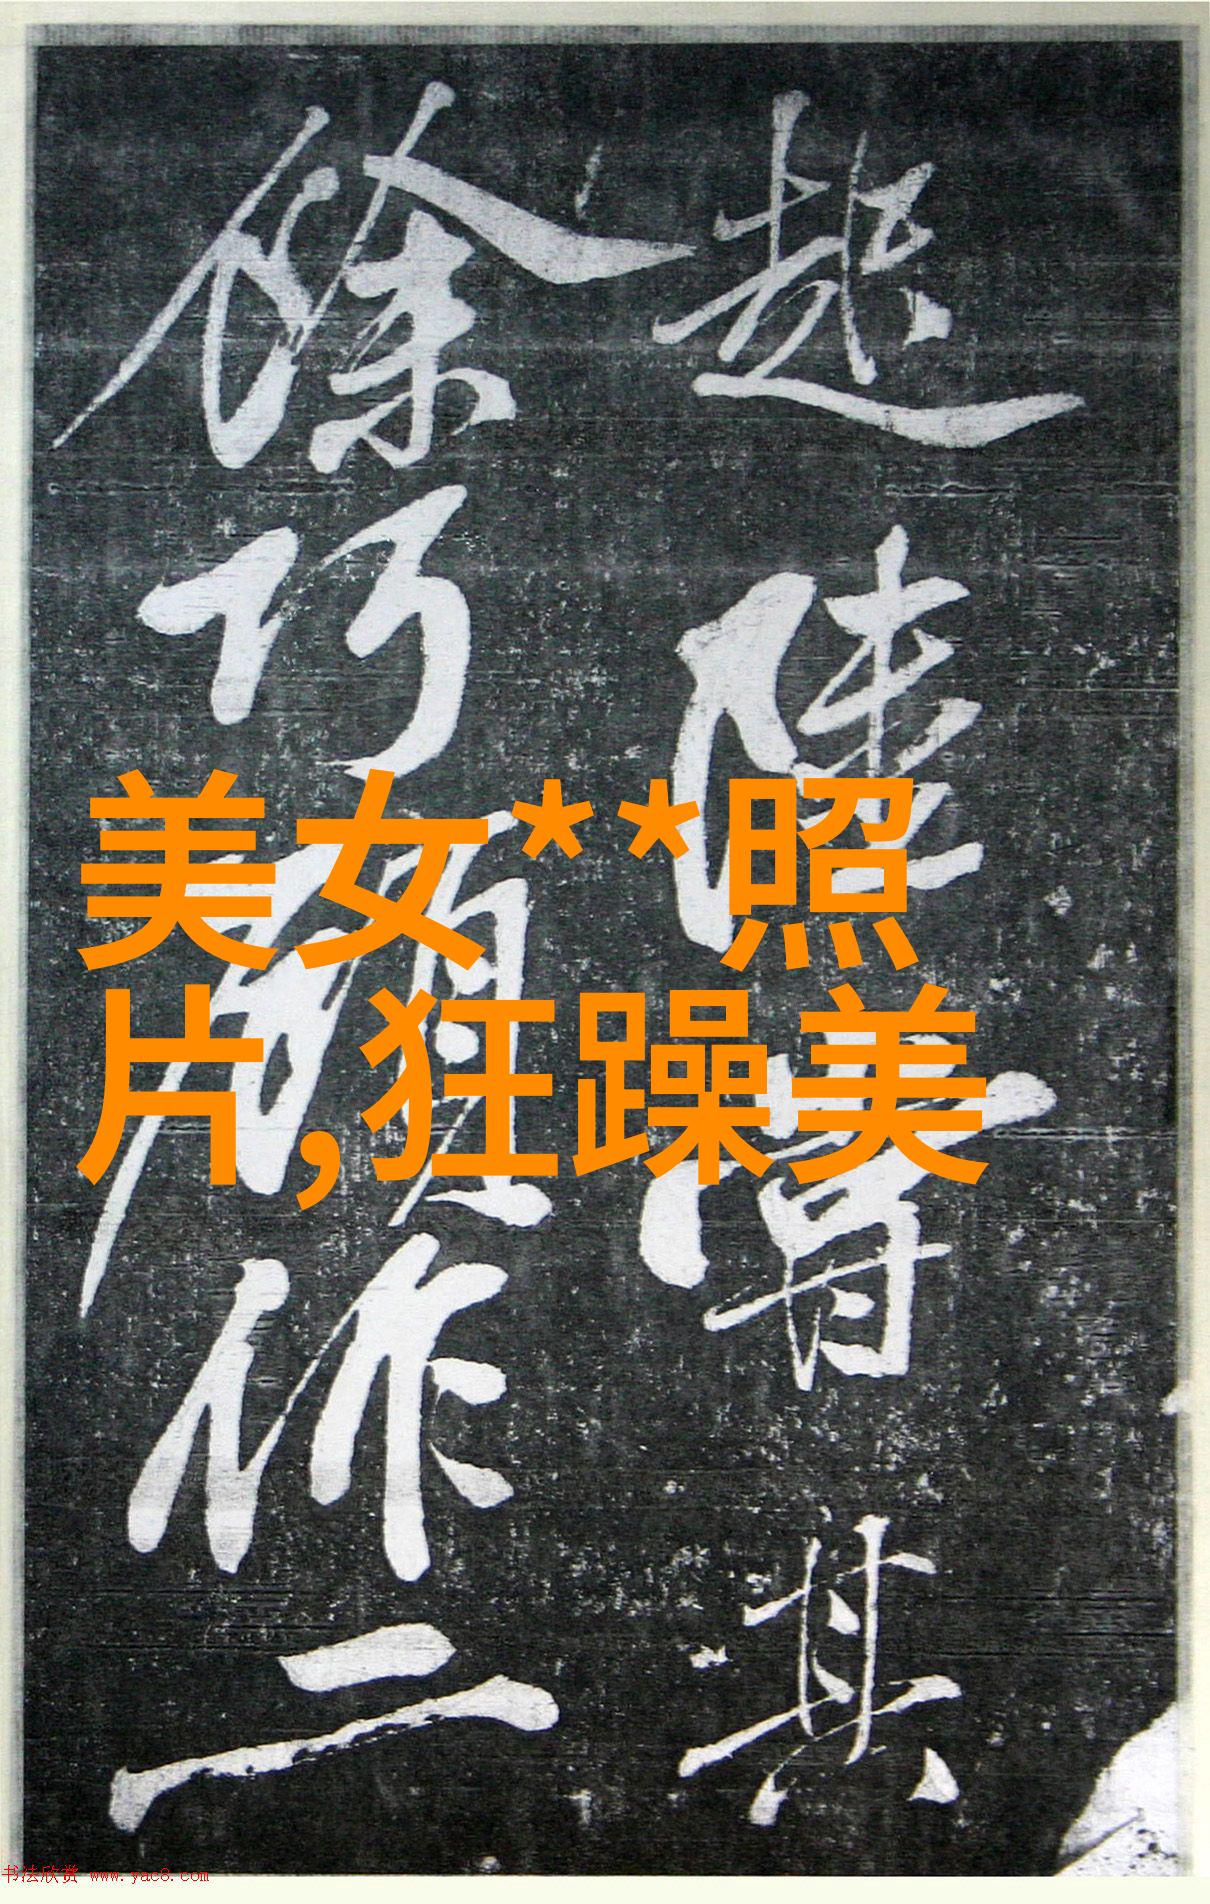 趂陸肾其
徐巧頭作二
美女**照
片,狂躁美
书法欣赏 www.yac8.com